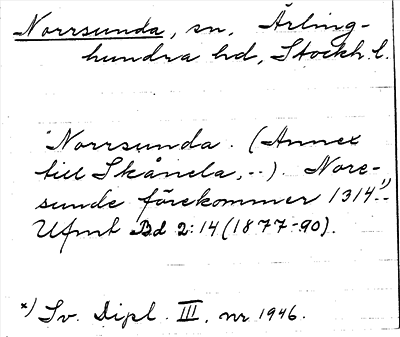 Norrsunda, sn, Ärling-
hundra hd, Stockh. l.
"Norrsunda. (Annex
till Skånela, --). Nore-
sunde förekommer 1314.¹)
Ufmt Bd 2:14 (1877-90).
x) Sv. Dipl. III, nr 1946.